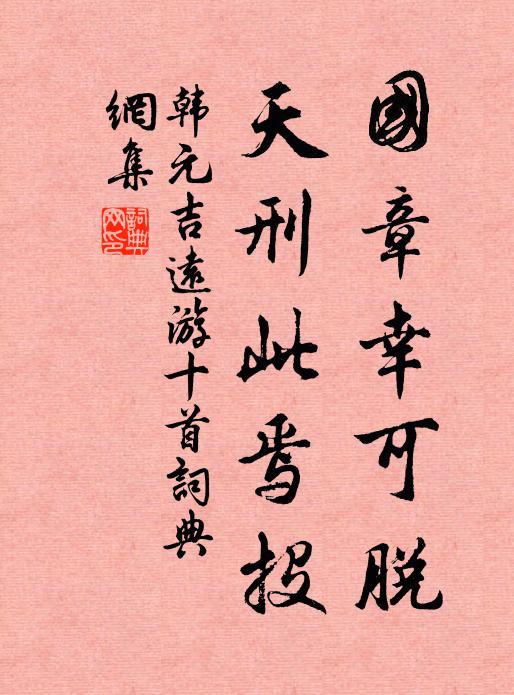 國章幸可脫
天刑此焉投
韩元吉遠游十首詞典
網集
詞典網印